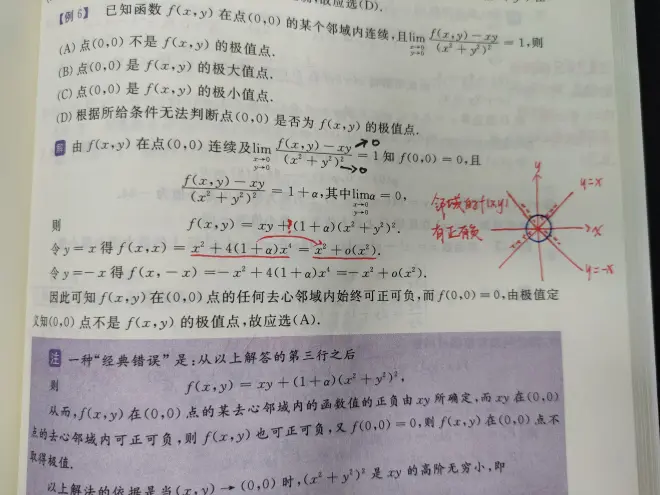 ,故应选(D).
【例 6】 已知函数 f(x,y) 在点(0,0) 的某个邻域内连续,且lim x→0 y→0 f(x,y)-xy / (x²+y²)² = 1,则
(A) 点(0,0) 不是 f(x,y) 的极值点.
(B) 点(0,0) 是 f(x,y) 的极大值点.
(C) 点(0,0) 是 f(x,y) 的极小值点.
(D) 根据所给条件无法判断点(0,0) 是否为 f(x,y) 的极值点.
解 由 f(x,y) 在点(0,0) 连续及lim x→0 y→0 f(x,y)-xy / (x²+y²)² = 1 知 f(0,0) = 0,且
→0
→0
f(x,y)-xy / (x²+y²)² = 1+α,其中lim x→0 y→0 α = 0,
则 f(x,y) = xy+(1+α)(x²+y²)².
令 y = x 得 f(x,x) = x²+4(1+α)x⁴ = x²+o(x²).
令 y =-x 得 f(x,-x) =-x²+4(1+α)x⁴ =-x²+o(x²).
y
y=x
x
y=-x
邻域的f(x,y)
有正有负
因此可知 f(x,y) 在(0,0) 点的任何去心邻域内始终可正可负,而 f(0,0) = 0,由极值定
义知(0,0) 点不是 f(x,y) 的极值点,故应选(A).
注 一种“经典错误”是:从以上解答的第三行之后
则 f(x,y) = xy+(1+α)(x²+y²)²,
从而,f(x,y) 在(0,0) 点的某去心邻域内的函数值的正负由 xy 所确定,而 xy 在(0,0)
点的去心邻域内可正可负,则 f(x,y) 也可正可负,又 f(0,0) = 0,则 f(x,y) 在(0,0) 点不
取得极值.
以上解法的依据是当(x,y) → (0,0) 时,(x²+y²)² 是 xy 的高阶无穷小,即